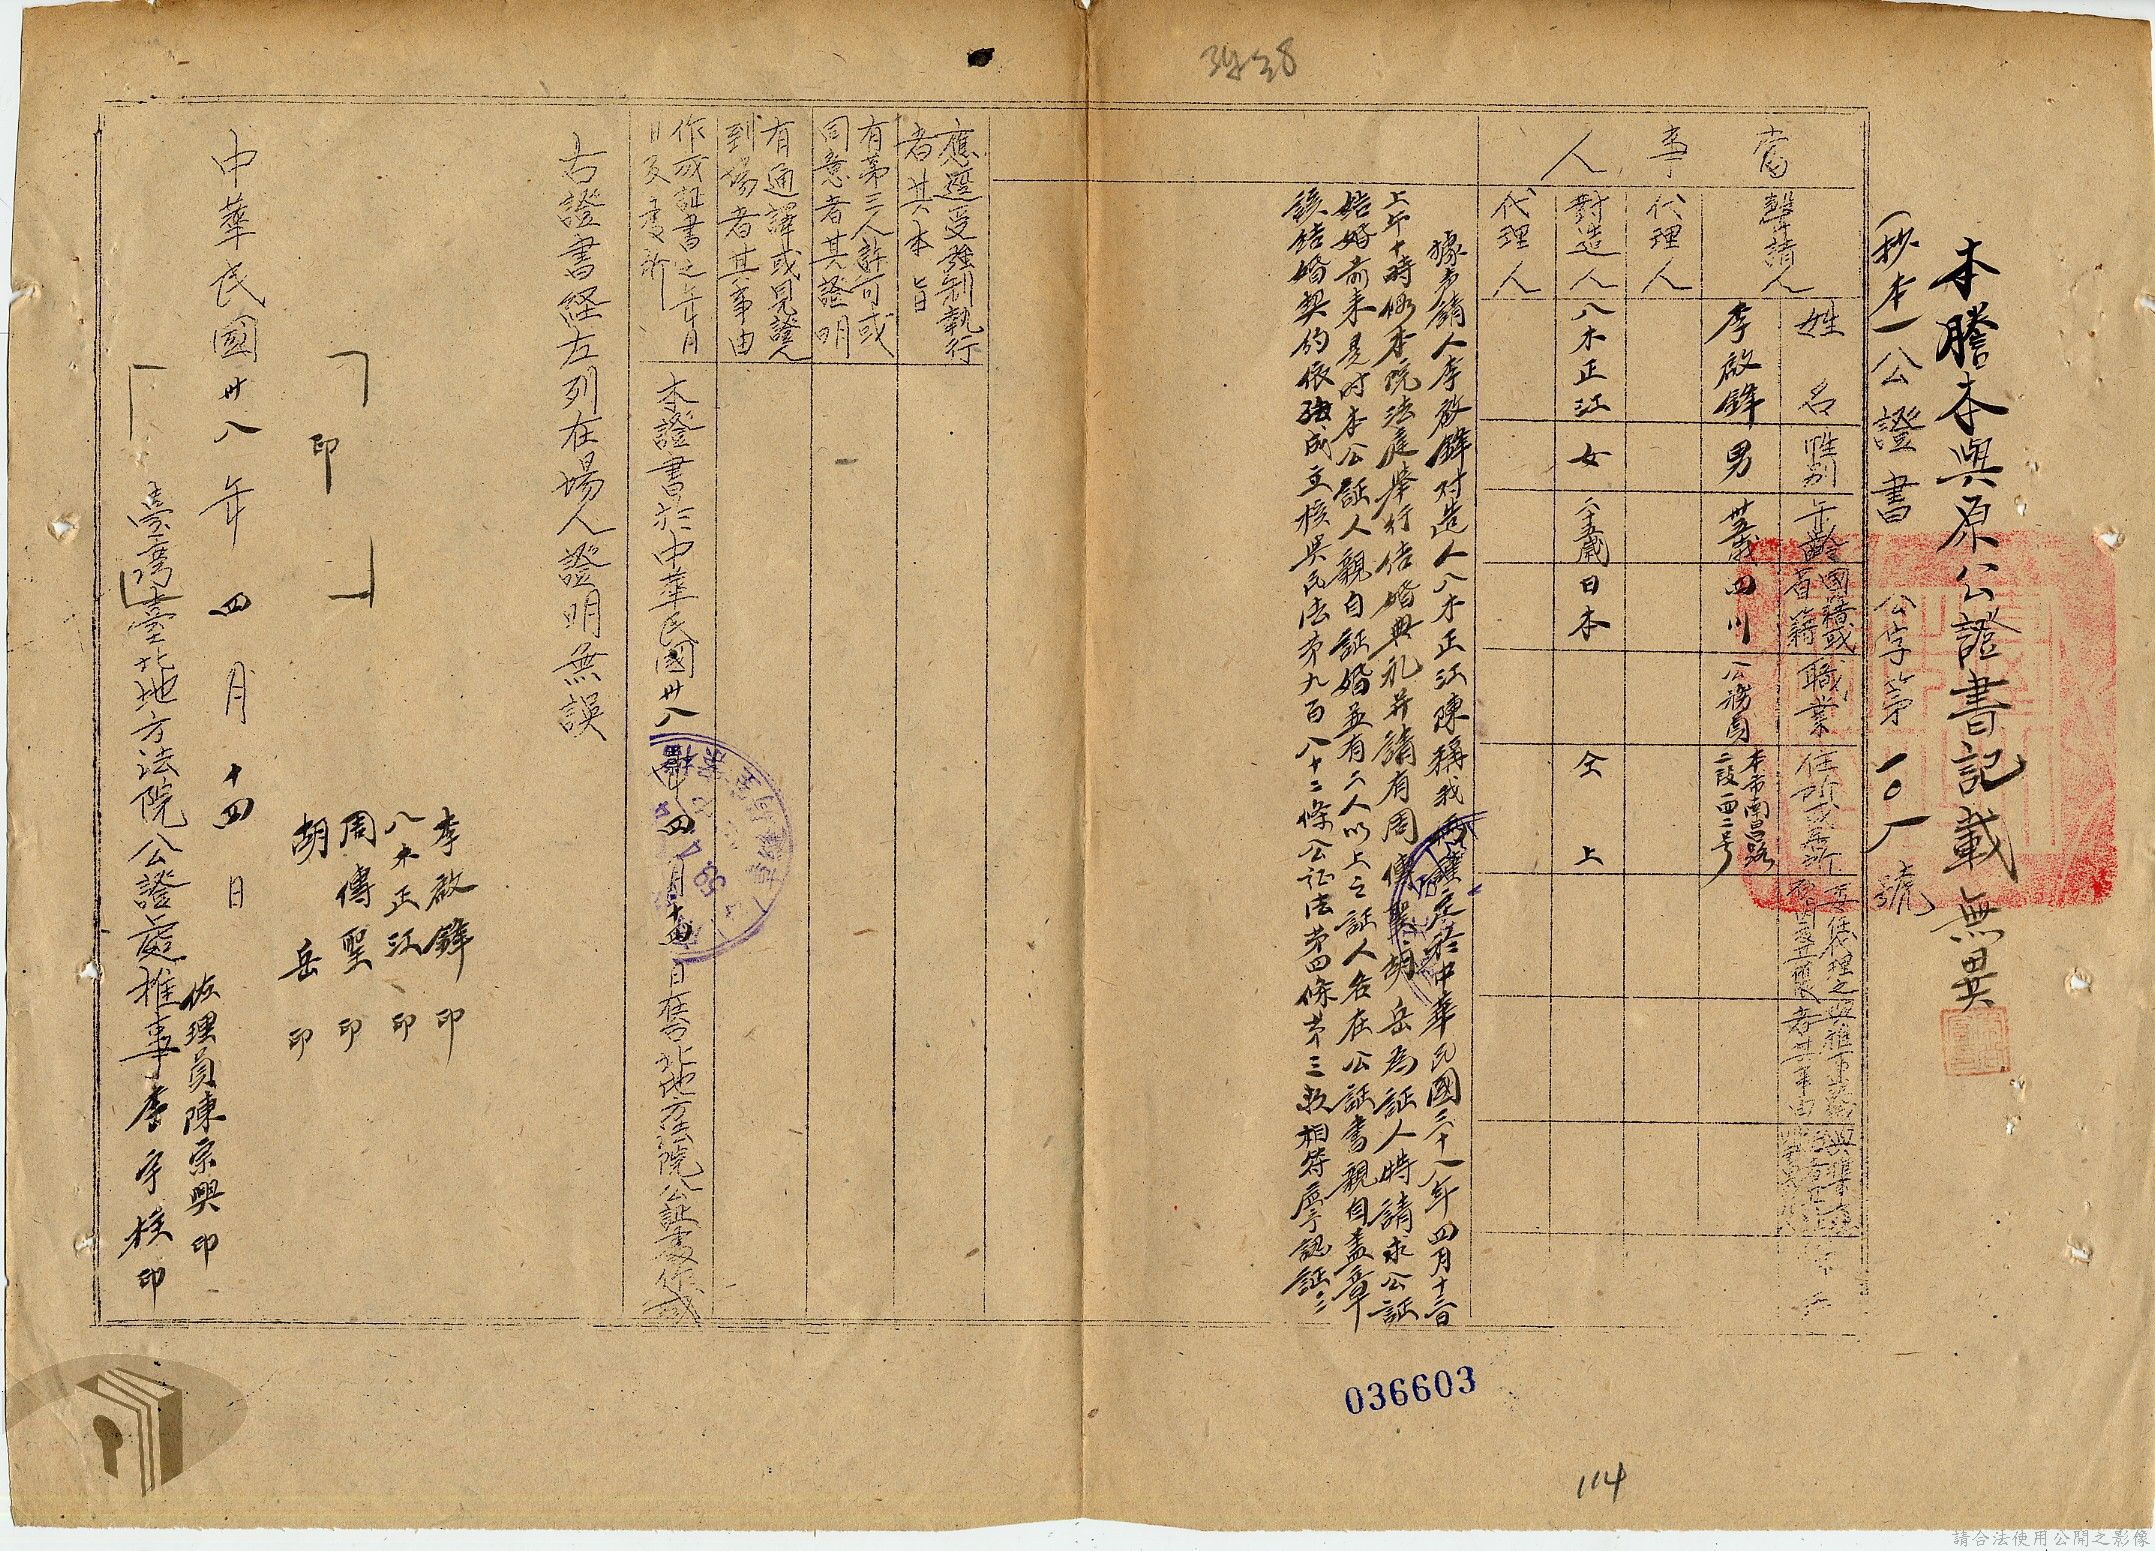 本謄本與原公證書記載無異
(抄本)公證書 公字第一〇一號
當事人
聲請人
代理人
對造人
代理人
姓名
性別
年齡
國籍或省籍
職業
住所或居所
李啟鋒 男 卅五歲 四川 公務員 本市南昌路二段一四二号
八木正江 女 二十五歲 日本 仝上
據声請人李啟鋒对造人八木正江陳稱我兩人謹定於中華民國三十八年四月十三日
上午十時假本院法庭舉行结婚典礼并請有周傳聖胡岳為証人特請求公証
结婚前来是时本公証人親自証婚並有二人以上之証人各在公証書親自盖章
該结婚契约依法成立核與民法第九百八十二條公证法第四條第三款相符應予認証
應逕受強制執行者其本旨
有第三人許可或同意者其證明
有通譯或見證人到場者其事由
作成証書之年月日及處所
本證書於中華民國卅八年四月十四日在台北地方法院公証處作成
右證書経左列在場人證明無誤
李啟鋒 印
八木正江 印
周傳聖 印
胡岳 印
印
中華民國卅八年四月十四日
佐理員陳宗興 印
臺灣臺北地方法院公證處推事李字桂 印
036603
114
請合法使用公開之影像